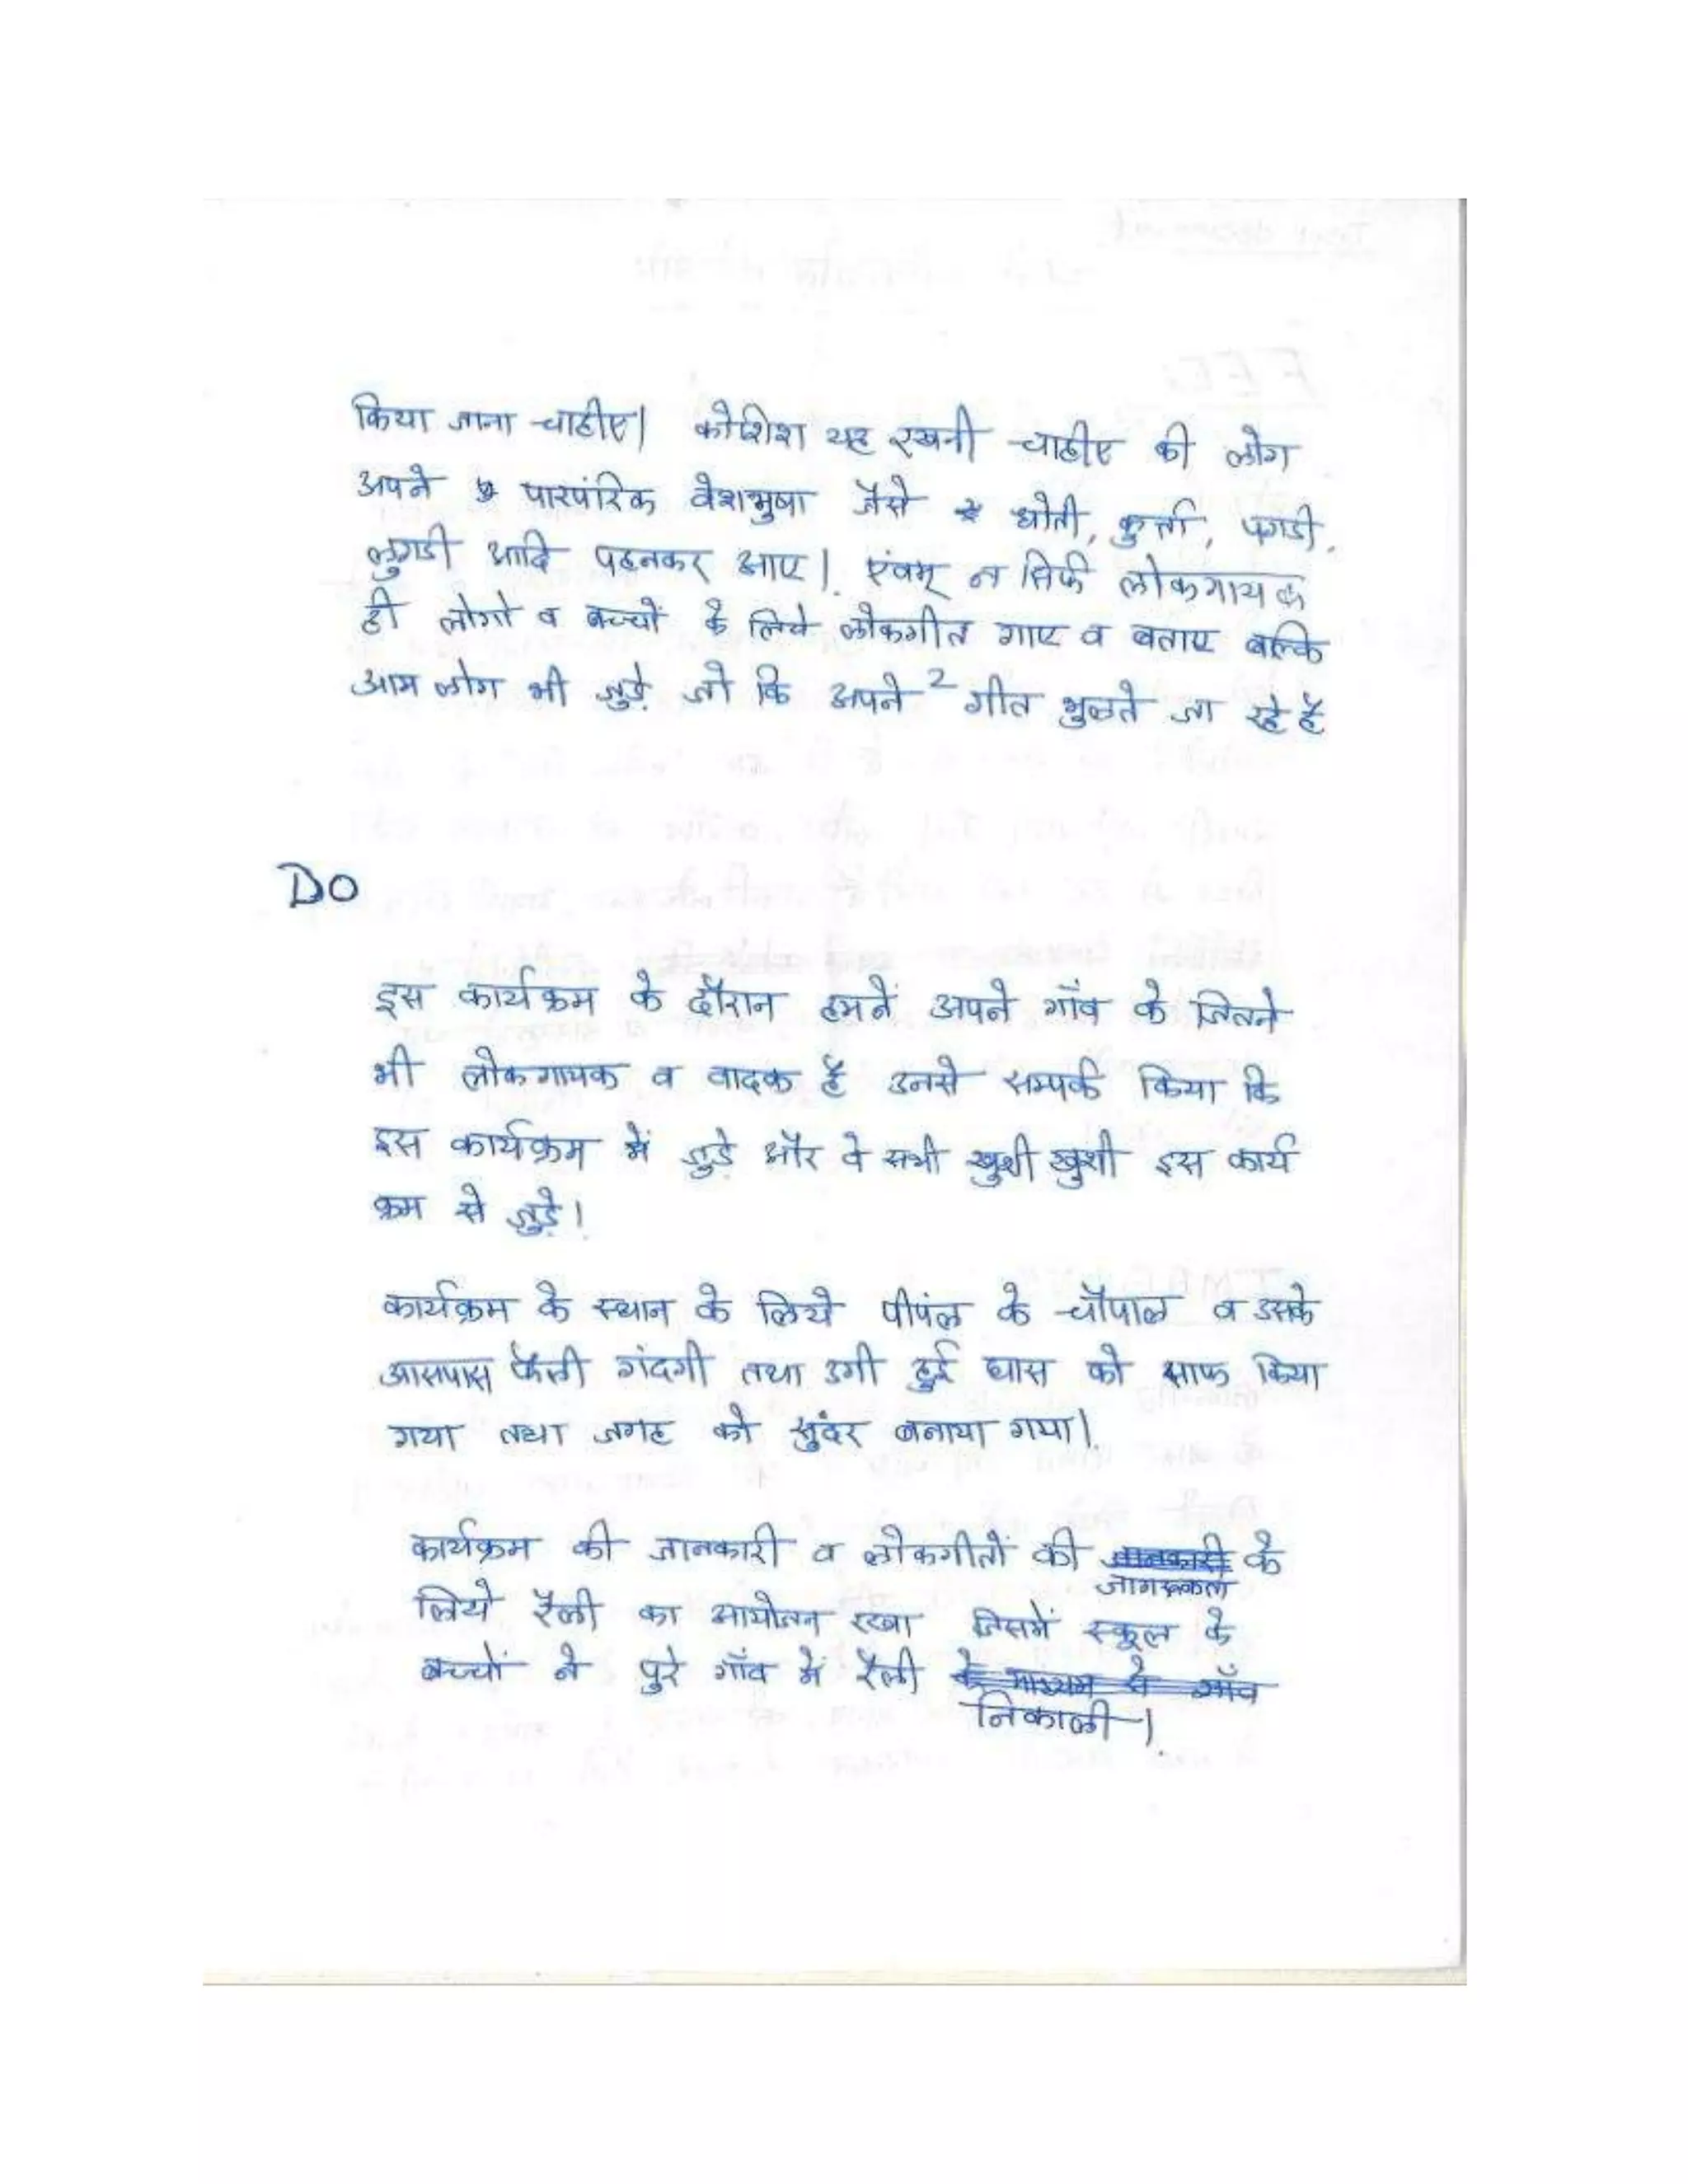 किया जाना चाहीए। कोशिश यह रखनी चाहीए की लोग
अपने पारपंरिक वेशभुषा जैसे धोती, कुर्ता, पगडी,
लुगडी आदि पहनकर आए। एंवम् न सिर्फ लोकगायक
ही लोगो व बच्चों के लिये लोकगीत गाए व बताए बल्कि
आम लोग भी जुड़े जो कि अपने २ गीत भुलते जा रहे है
DO
इस कार्यक्रम के दौरान हमनें अपने गाँव के जितने
भी लोकगायक व वादक है उनसे सम्पर्क किया कि
इस कार्यक्रम में जुड़े और वे सभी खुशी खुशी इस कार्य
क्रम से जुड़े।
कार्यक्रम के स्थान के लिये पीपंल के चौपाल व उसके
आसपास फैली गंदगी तथा उगी हुई घास को साफ किया
गया तथा जगह को सुंदर बनाया गया।
कार्यक्रम की जानकारी व लोकगीतों की जानकारी के
जागरूकता
लिये रैली का आयोजन रखा जिसमें स्कूल के
बच्चों ने पुरे गाँव में रैली के माध्यम से गाँव
निकाली।